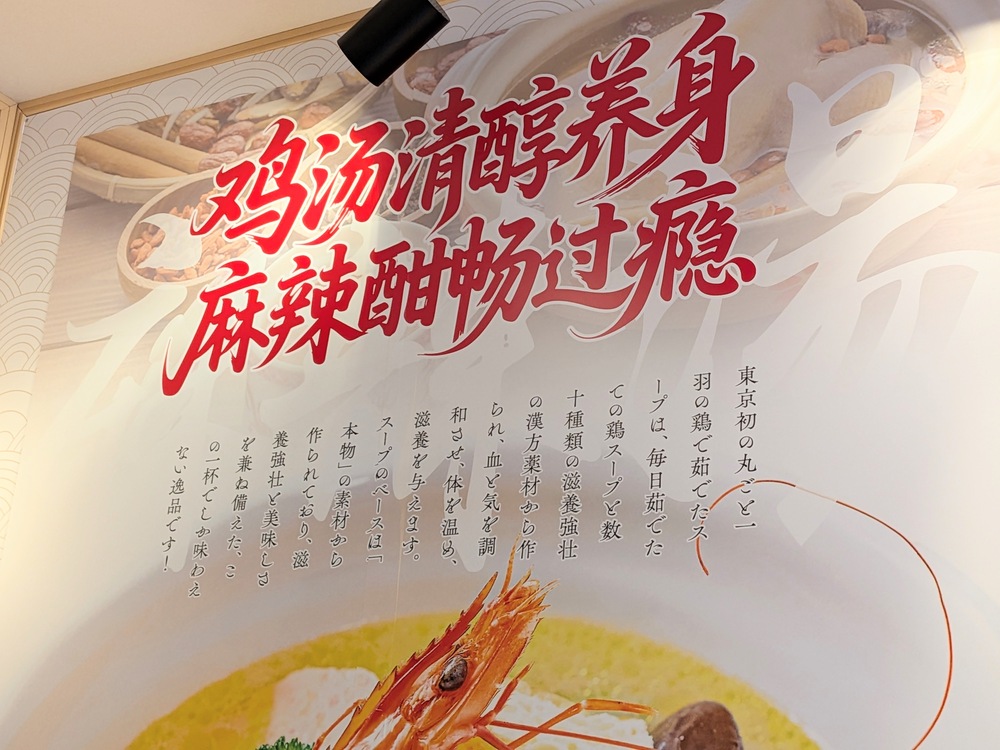 鸡汤清醇养身
麻辣酣畅过瘾
東京初の丸ごと一
羽の鶏で茹でたス
ープは、毎日茹でた
ての鶏スープと数
十種類の滋養強壮
の漢方薬材から作
られ、血と気を調
和させ、体を温め、
滋養を与えます。
スープのベースは「
本物」の素材から
作られており、滋
養強壮と美味しさ
を兼ね備えた、こ
の一杯でしか味わえ
ない逸品です！